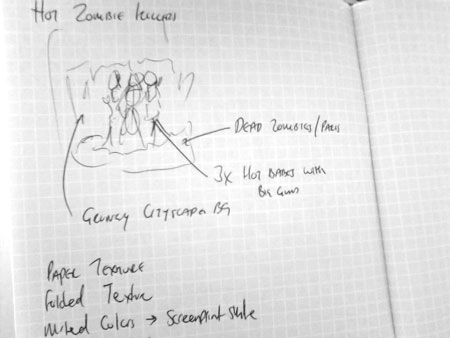 HOT ZOMBIE KILLERS
DEAD ZOMBIES/PARTS
3X HOT BABES WITH
BIG GUNS
GRUNGY CITYSCAPE BG
PAPER TEXTURE
FOLDED TEXTURE
MUTED COLORS → SCREENPRINT STYLE